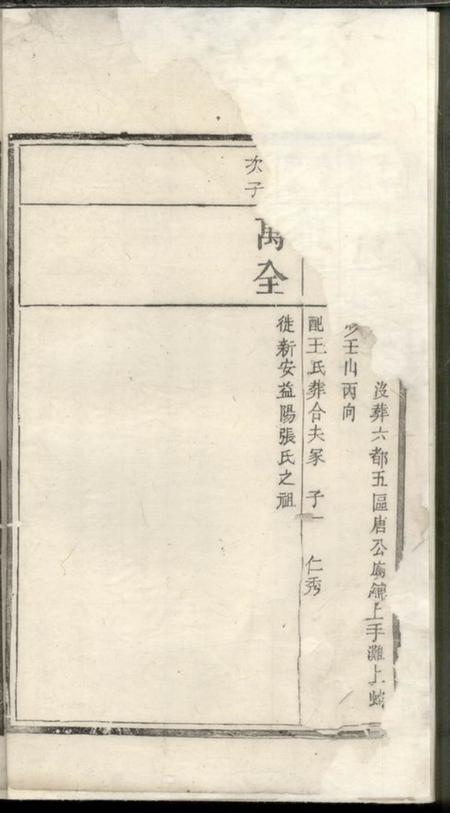 沒葬六都五區唐公廟𨫼上手灘上
壬山丙向
配王氏葬合夫冢 子一 仁秀
次子
萬全
徙新安益陽張氏之祖